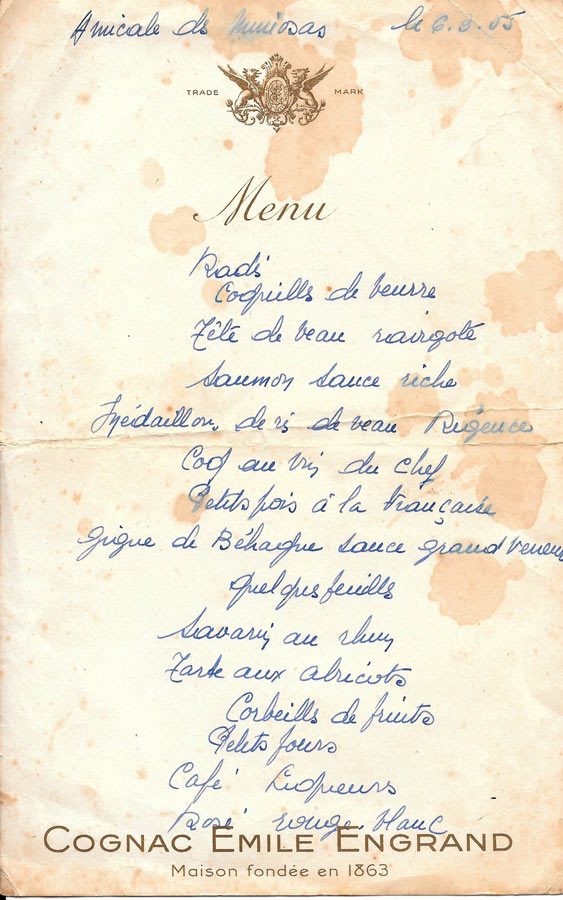 Amicale des Mimosas le 6.3.55
TRADE MARK
Menu
Radis
Coquilles de beurre
Tête de veau ravigote
Saumon sauce riche
Médaillon de ris de veau Régence
Coq au vin du chef
Petits pois à la française
Gigue de Béhague sauce grand veneur
quelques feuilles
Savarin au rhum
Tarte aux abricots
Corbeilles de fruits
Petits fours
Café Liqueurs
Rosé rouge blanc
COGNAC EMILE ENGRAND
Maison fondée en 1863